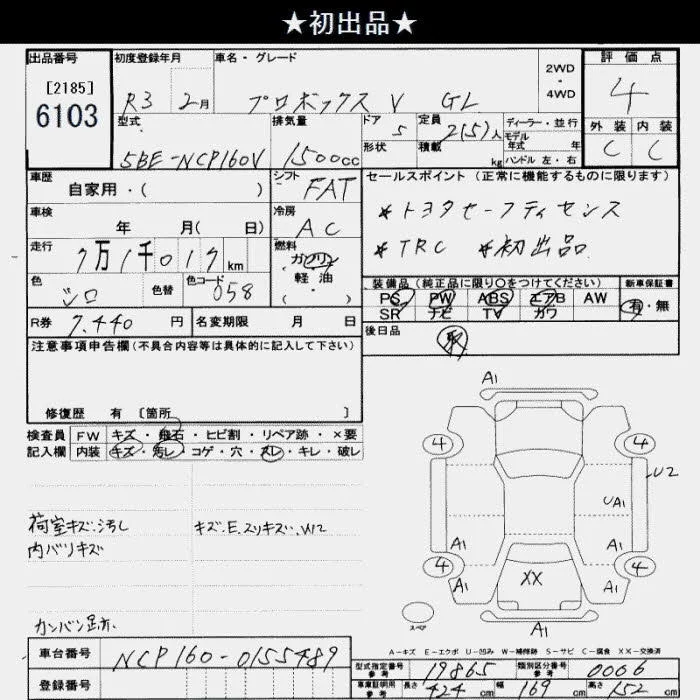 ★初出品★
出品番号 初度登録年月 車名・グレード 2WD・4WD 評価点
[2185]
6103
R3 2月 プロボックスV GL 4
型式 排気量 ドア 定員 ディーラー・並行 外装 内装
5BE-NCP160V 1500cc 5 2(5)人 モデル年式 年 C C
形状 積載 kg ハンドル 左・右
車歴 シフト セールスポイント (正常に機能するものに限ります)
自家用・( ) FAT
*トヨタセーフティセンス
車検 冷房
年 月( 日) AC
*TRC *初出品
走行 燃料
7万1千017km ガソリン 軽油 ( )
装備品(純正品に限り○をつけてください) 新車保証書
色 色替 色コード
シロ 058
PS PW ABS エアB AW 有・無
SR ナビ TV カワ
R券 7,440円 名変期限 月 日
後日品
取
注意事項申告欄(不具合内容等は具体的に記入して下さい)
修復歴 有 〔箇所 〕
検査員 FW キズ・飛石・ヒビ割・リペア跡・×要
記入欄 内装 キズ・汚レ・コゲ・穴・スレ・キレ・破レ
荷室キズ・汚し キズ、E、スリキズ、W2
内バリキズ
カンバン跡
A1
4 4
U2
UA1
A1 A1
4 4
A1 XX A1
スペア
A1
A-キズ E-エクボ U-凹み W-補修跡 S-サビ C-腐食 XX-交換済
車台番号 NCP160-0155489
登録番号
型式指定番号 参考 19865 類別区分番号 参考 0006
車庫証明用 参考 長さ 424cm 幅 169cm 高さ 152cm